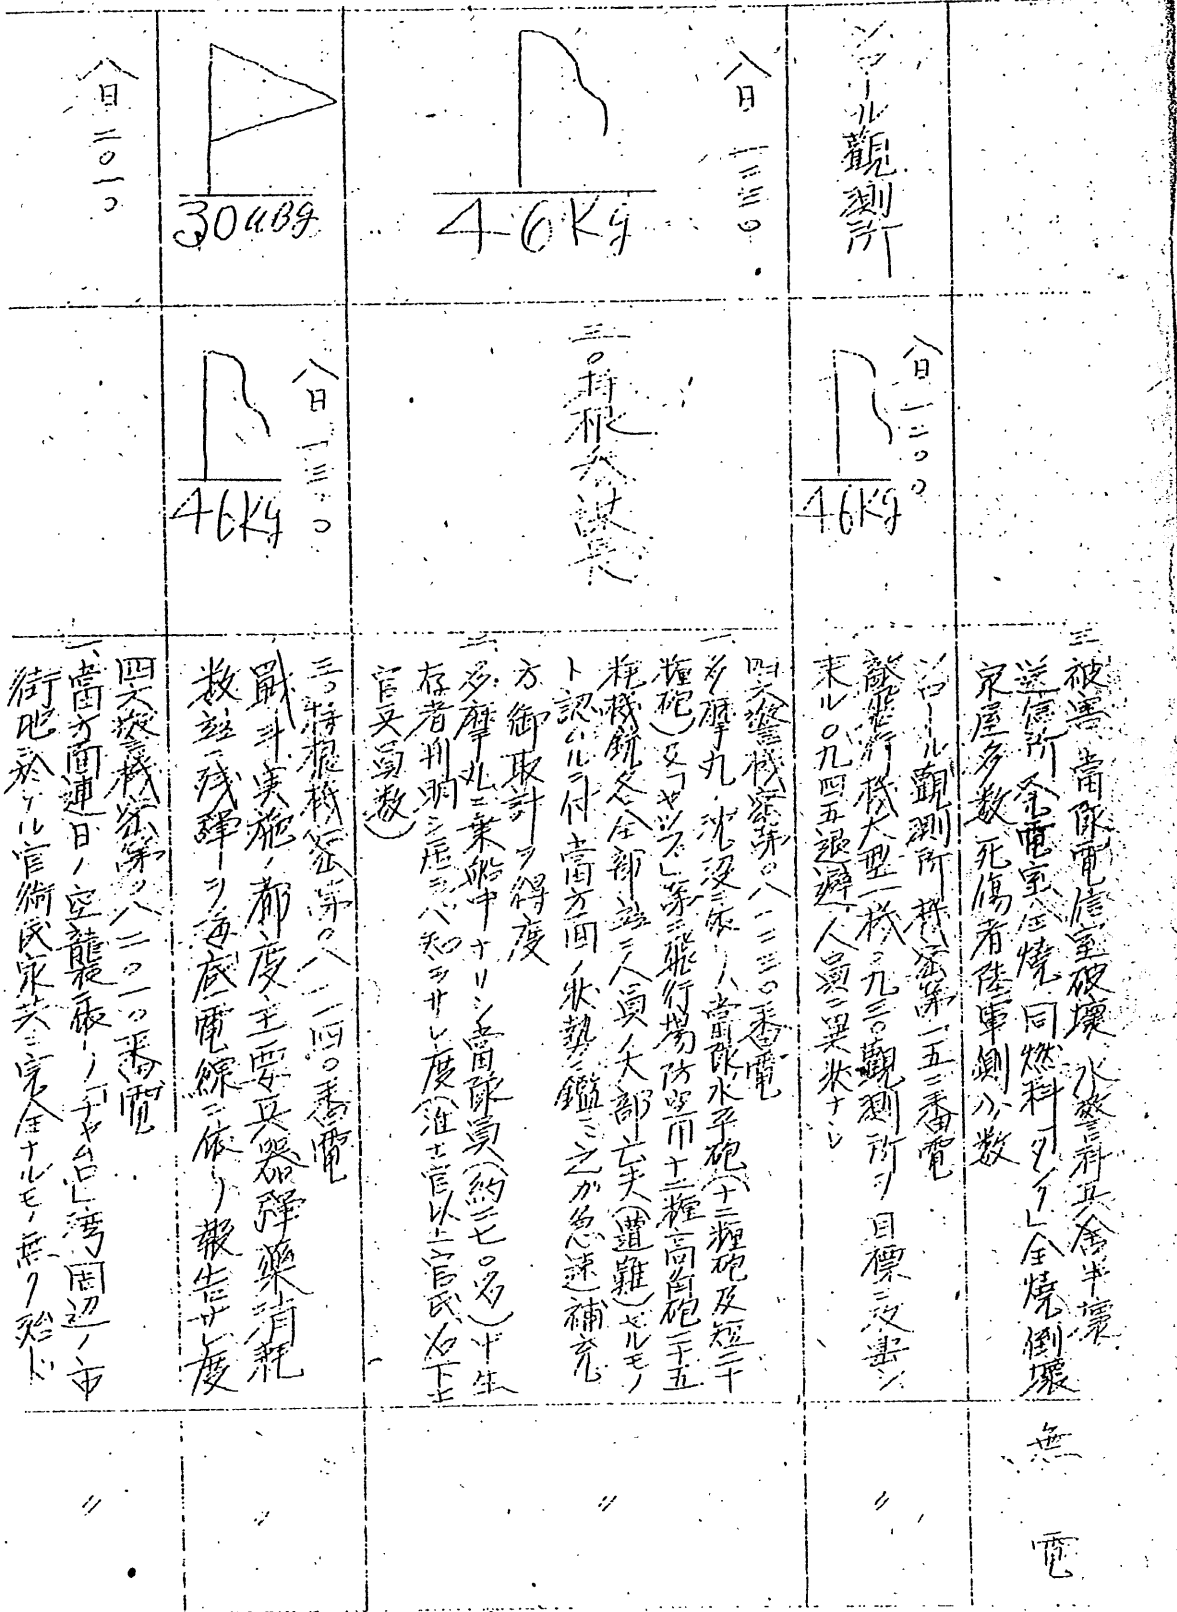 三、被害 當隊電信室破壞 水警科兵舍半壞
送信所 発電室全燒 同燃料「タンク」全燒倒壞
家屋多数 死傷者陸軍側少数
無電
観測所
八日一二〇〇
46Kg
観測所機密第一五二番電
敵飛行機大型一機〇九三〇觀測所ヲ目標ニ攻撃シ
来ル〇九四五退避、人員ニ異状ナシ
〃
八日一二三〇
46Kg
三〇特根参謀長
四六警機密第〇八一二三〇番電
一、多摩丸ノ沈没ニ依リ當隊水平砲(十二糎砲及短二十
糎砲)及「ヤップ」第三飛行場防空用十二糎高角砲二十五
粍機銃各全部並ニ人員ノ大部亡失(遭難)セルモノ
ト認ムルニ付當方面ノ状勢ニ鑑ミ之ガ急速補充
方御取計ヲ得度
二、多摩丸ニ乗船中ナリシ當隊員(約二七〇名)中生
存者判明シ居ラバ知ラサレ度(准士官以上官氏名下士
官兵員数)
〃
30UBg
八日一三〇
46Kg
三〇特根機密第〇八一一四〇番電
戰斗実施ノ都度主要兵器彈藥消耗
数並ニ残彈ヲ海底電線ニ依リ報告サレ度
〃
八日二〇一〇
四六警機密第〇八二〇一〇番電
一、當方面連日ノ空襲ニ依リ「チャムロ」湾周辺ノ市
街地ニ於ケル官衙民家共ニ完全ナルモノ無ク殆ド
〃